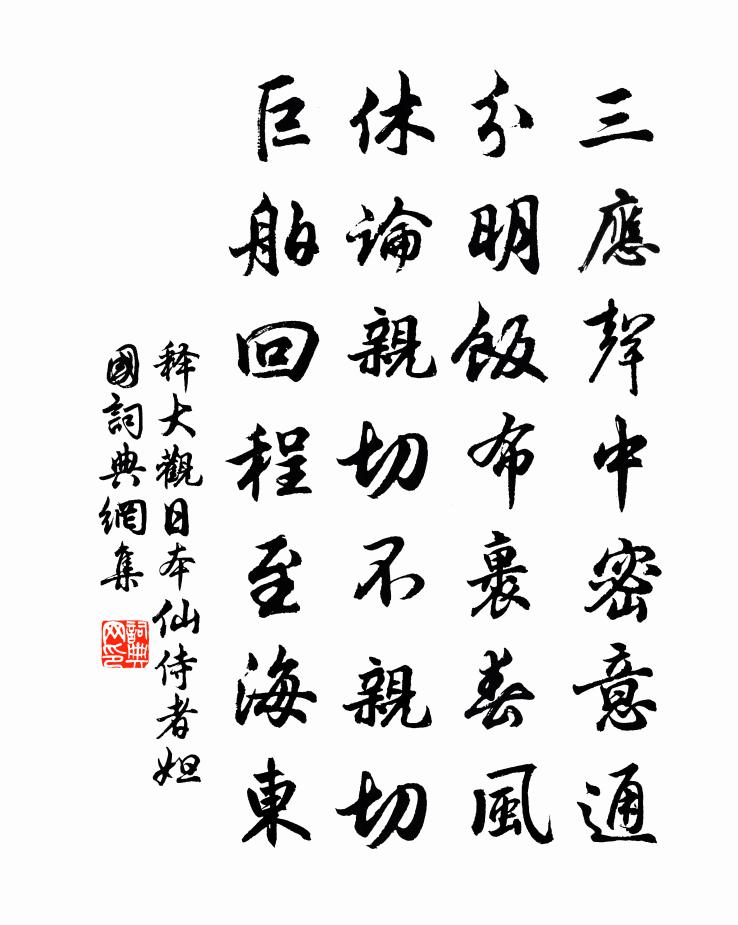 三應聲中密意通
分明飯布裹春風
休論親切不親切
巨舶回程至海東
釋大觀日本仙侍者妲
國詞典網集
詞典
网印